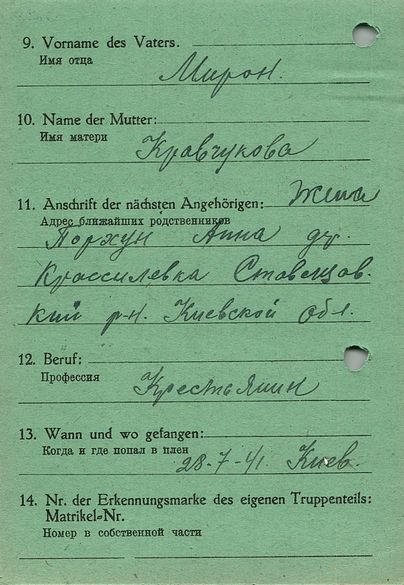 9. Vorname des Vaters.
Имя отца
Мирон.
10. Name der Mutter:
Имя матери
Кравчукова
11. Anschrift der nächsten Angehörigen: Жена
Адрес ближайших родственников
Порхун Анна др.
Крассилевка Ставищов.
кий р-н. Киевской обл.
12. Beruf:
Профессия
Крестьянин
13. Wann und wo gefangen:
Когда и где попал в плен
28-7-41. Киев.
14. Nr. der Erkennungsmarke des eigenen Truppenteils:
Matrikel=Nr.
Номер в собственной части